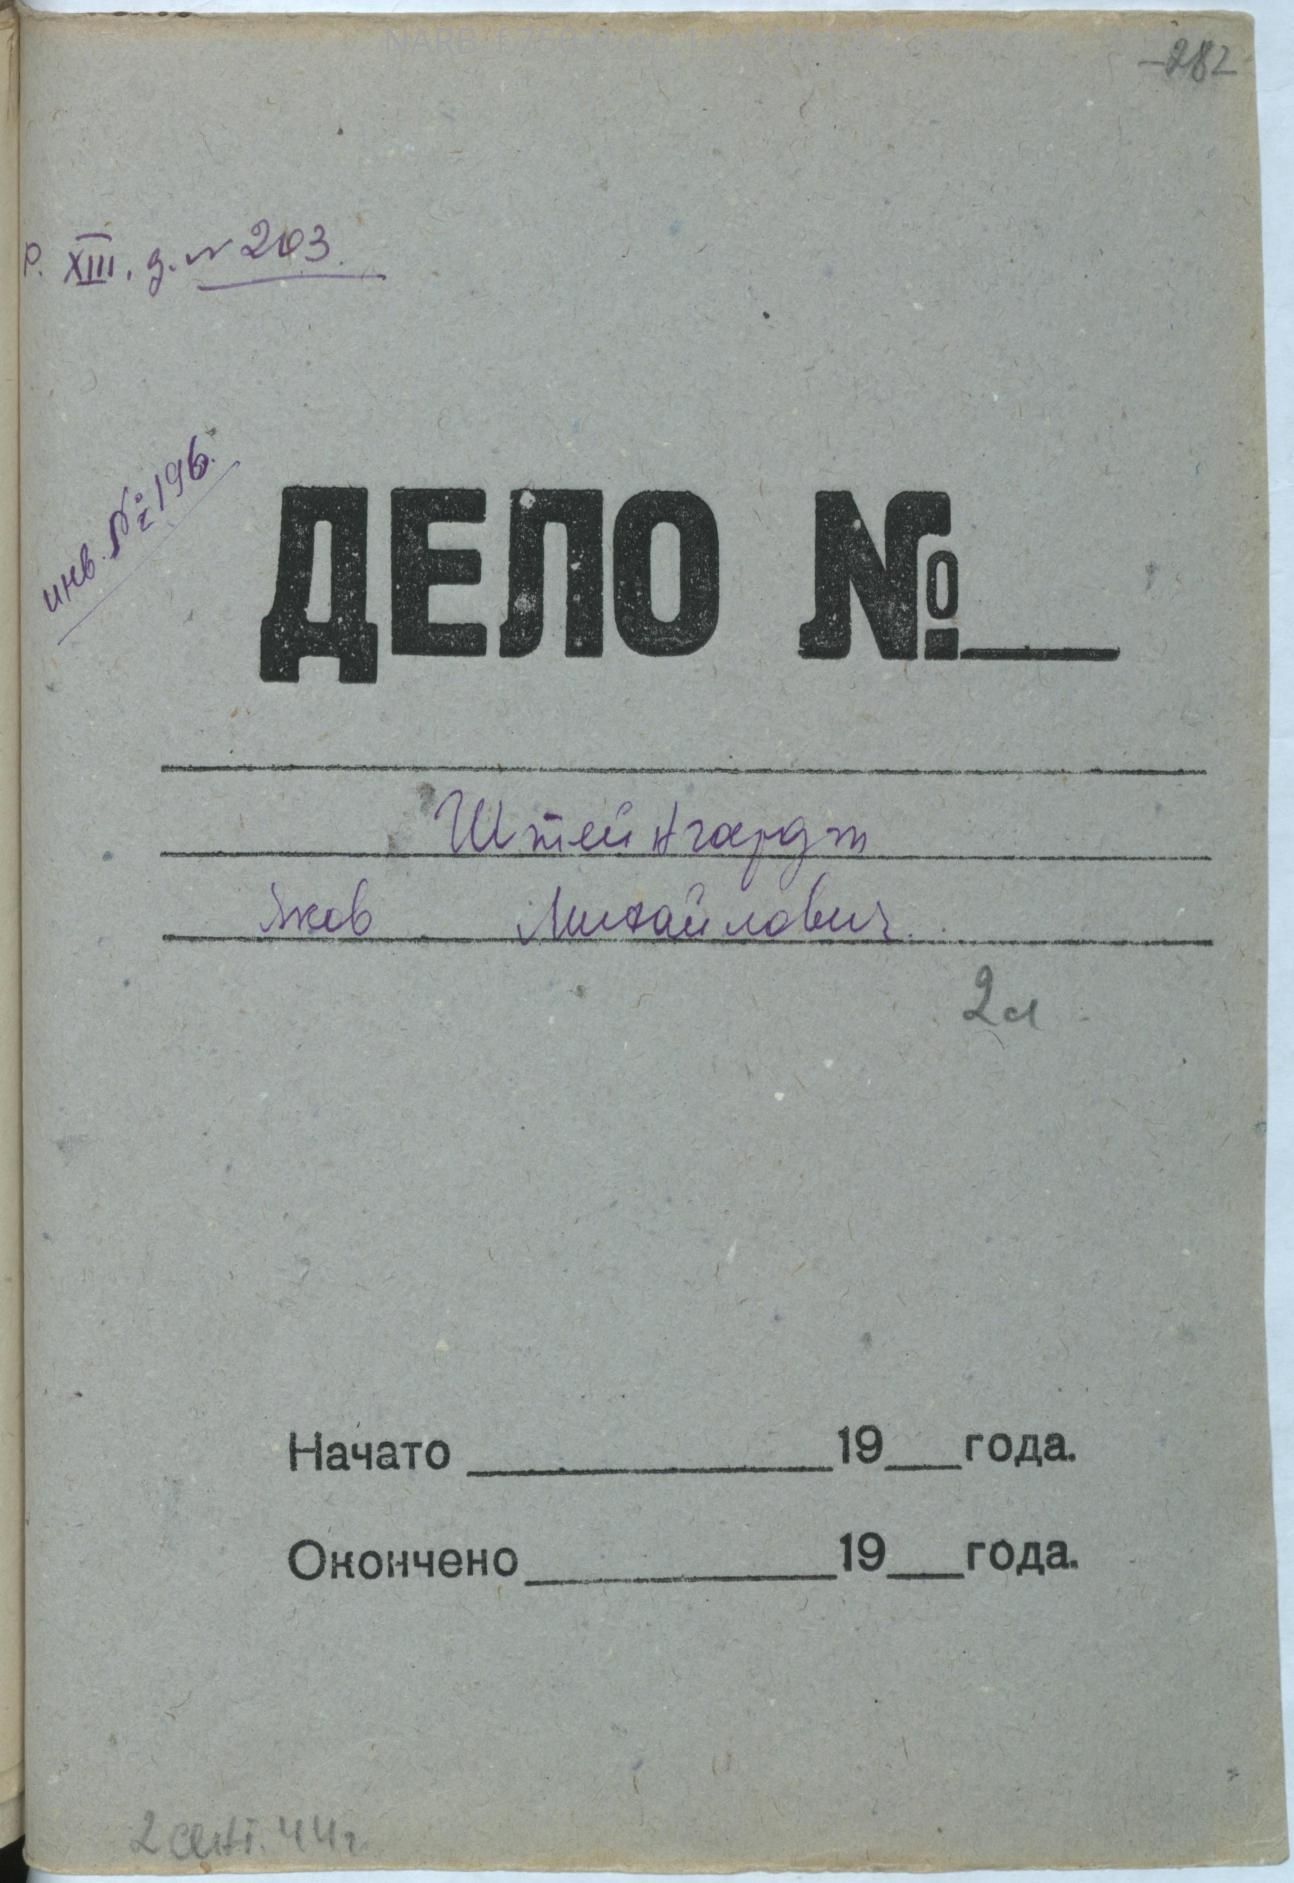 282
р. XIII. д. № 203.
инв. № 196.
ДЕЛО №
Штейнгардт
Яков Михайлович.
2 л
Начато 19 года.
Окончено 19 года.
2 сент. 44 г.